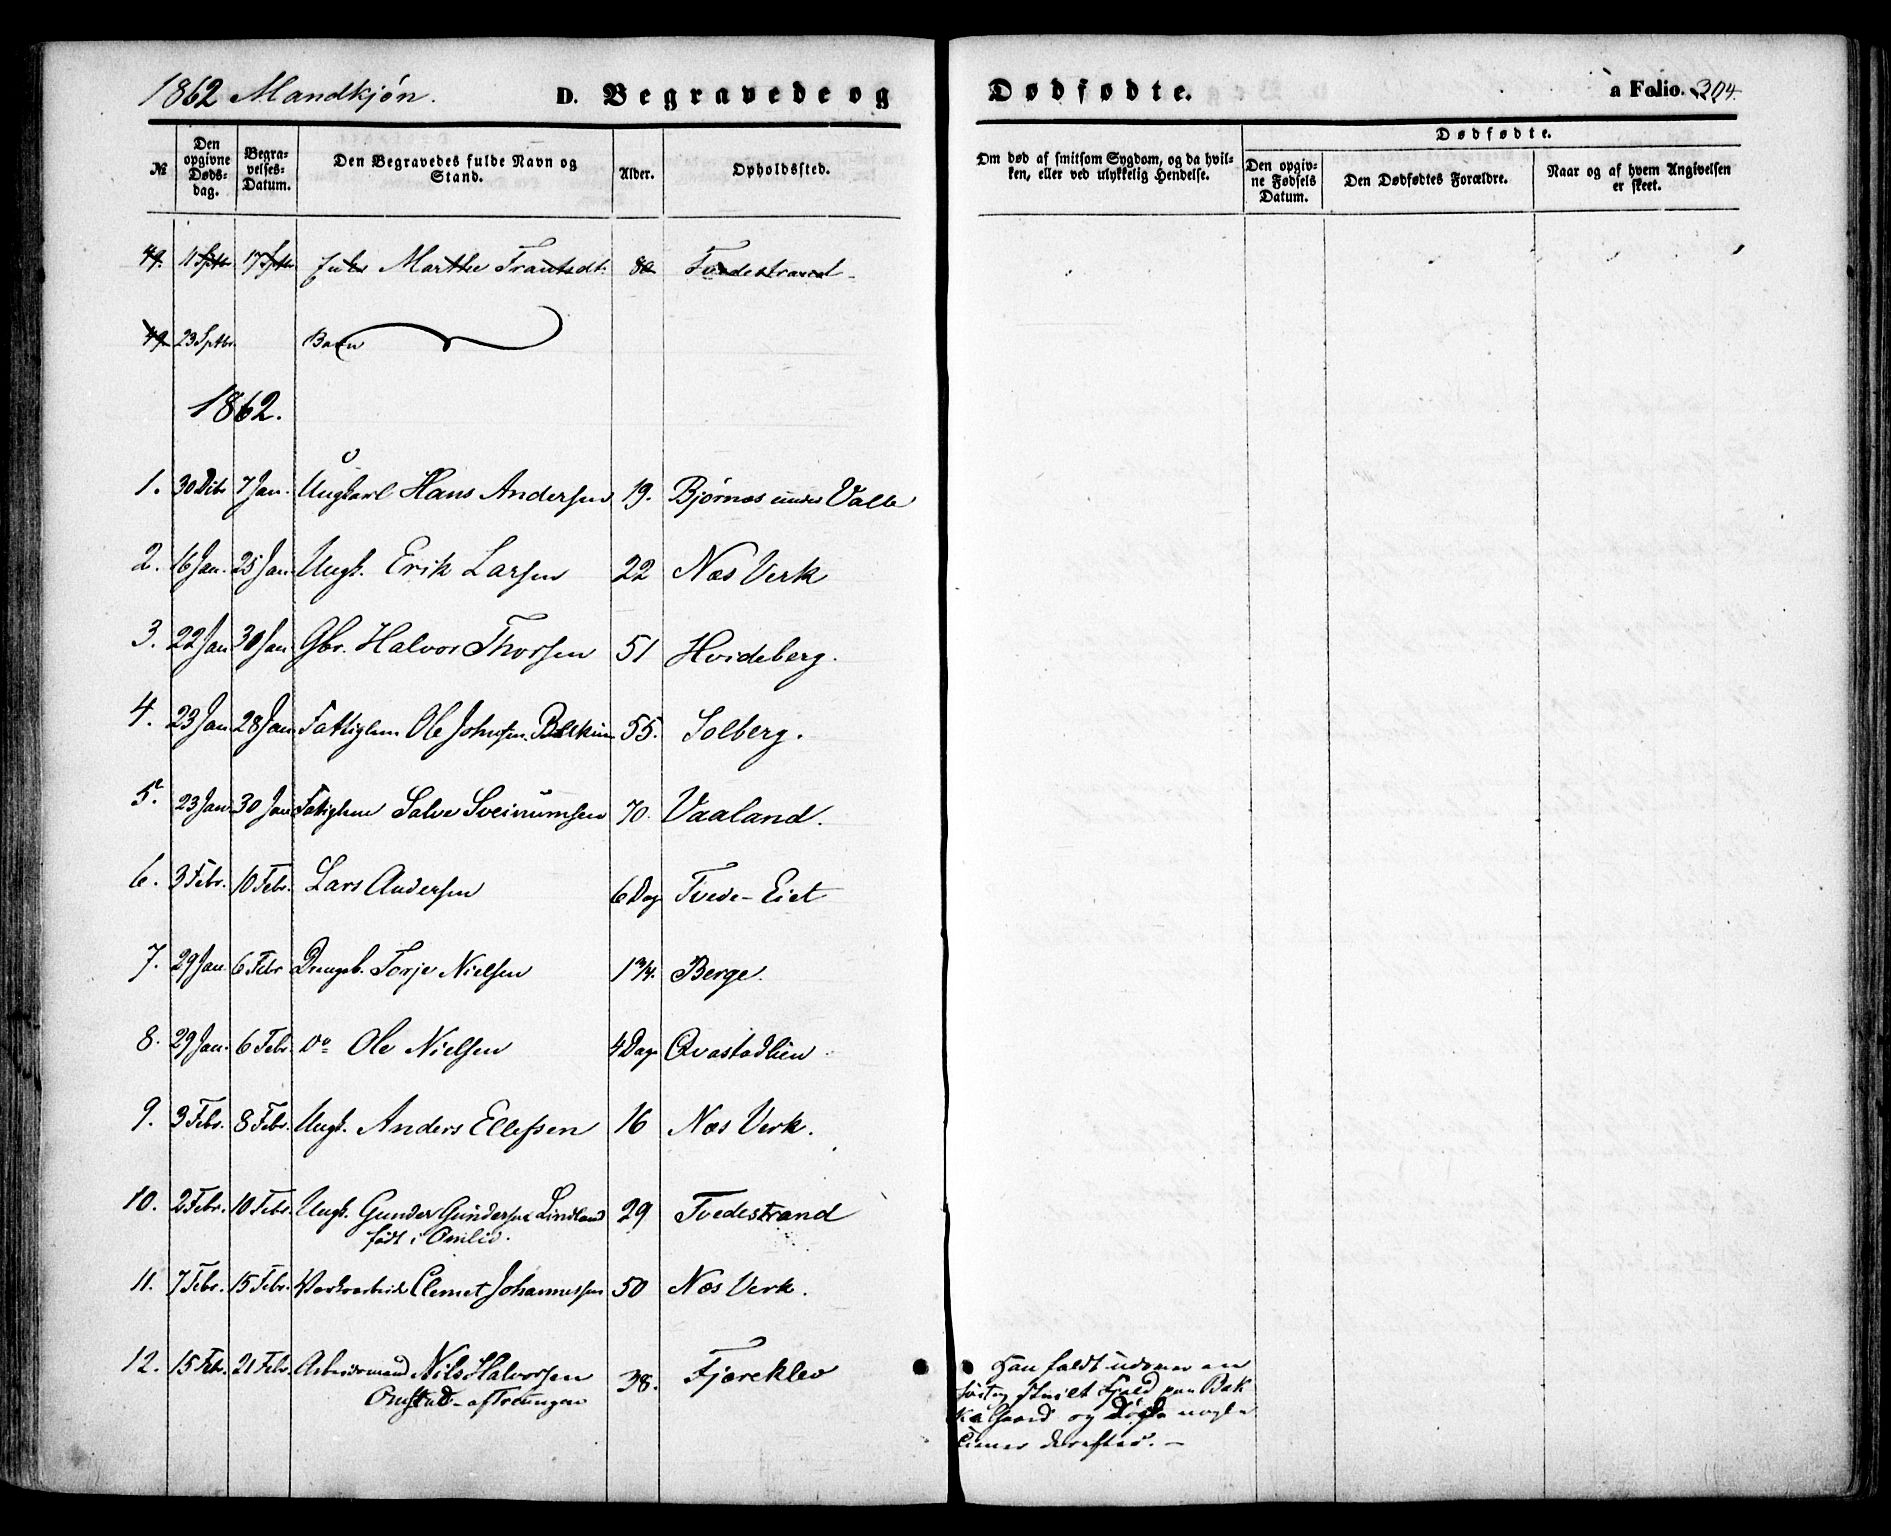 1862 Mandkjøn.
D. Begravede og Dødfødte.
a Folio. 304.
№
Den opgivne Døds-dag.
Begra-velses-Datum.
Den Begravedes fulde Navn og Stand.
Alder.
Opholdssted.
Om død af smitsom Sygdom, og da hvil-ken, eller ved ulykkelig Hendelse.
Dødfødte.
Den opgiv-ne Fødsels Datum.
Den Dødfødtes Forældre.
Naar og af hvem Angivelsen er skeet.
49. 11 Sptb. 17 Sptb. Marthe Tvedestrand
49. 23 Sptbr. Barn
1862.
1. 30 Dcbr 7 Jan. Ungkarl Hans Andersen 19. Bjørnæs under Valle
2. 16 Jan. 25 Jan. Ungk. Erik Larsen 22 Næs Verk
3. 22 Jan 30 Jan. Gbr. Halvor Thorsen 51 Hvideberg.
4. 23 Jan 28 Jan. Fattiglem Ole Johnsen 55. Solberg.
5. 23 Jan. 30 Jan Fattiglem Salve Sveinumsen 70. Vaaland.
6. 3 Febr. 10 Febr. Lars Andersen 6 Dag Tvede-Eiet
7. 29 Jan 6 Febr Drengeb. Torje Nielsen 1 3/4. Berge.
8. 29 Jan. 6 Febr. Do Ole Nielsen 4 Dage Qvastadlien
9. 3 Febr. 8 Febr. Ungk. Anders Ellefsen 16 Næs Verk.
10. 2 Febr. 10 Febr. Ungk. Gunder Gundersen Lindland 29 Tvedestrand
født i Omlid.
11. 7 Febr. 15 Febr. Verksarbeid. Clemet Johannessen 50 Næs Verk.
12. 15 Febr. 21 Febr. Arbeidsmand Nils Halvorsen 38. Fjæreklev
Omstad - af Troungen
Han faldt udover en
steilt Fjeld paa Bak
ke Gaard og døde nogle
Timer derefter. -